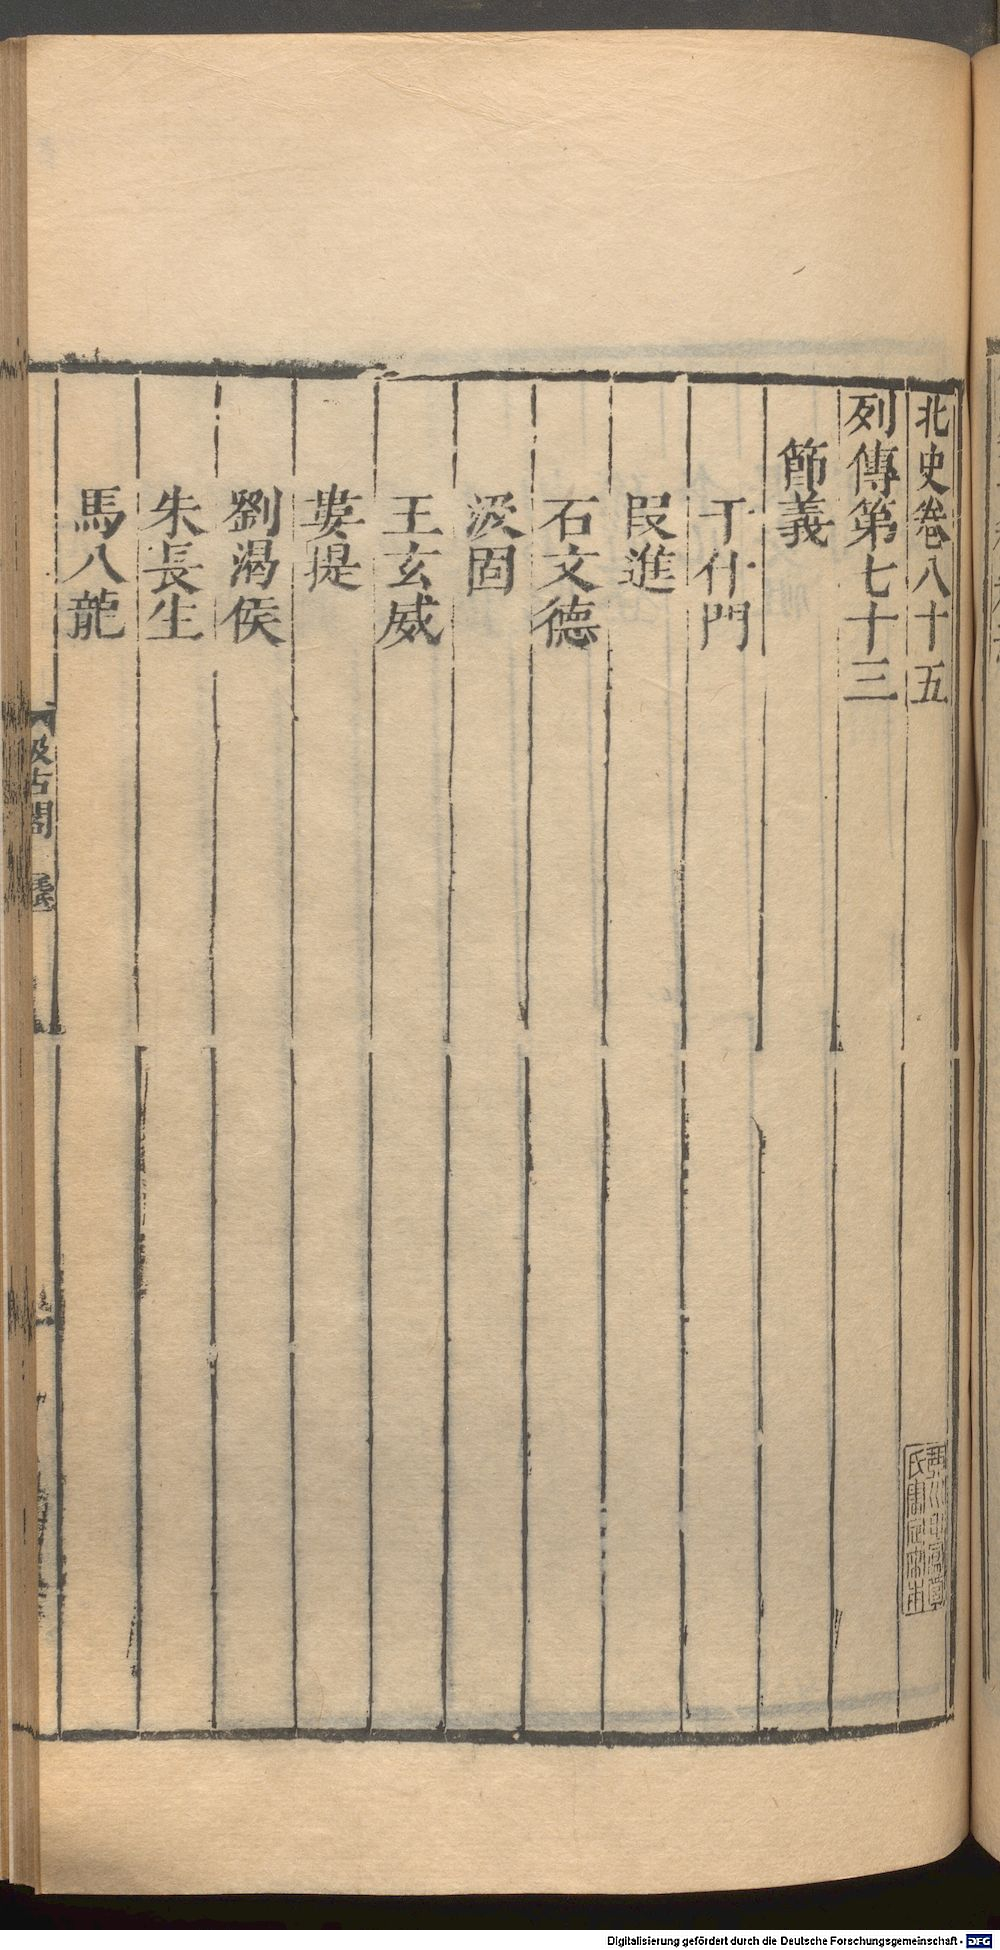 北史卷八十五
列傳第七十三
節義
于什門
段進
石文德
汲固
王玄威
婁提
劉渴侯
朱長生
馬八龍
汲古閣
Digitalisierung gefördert durch die Deutsche Forschungsgemeinschaft - DFG